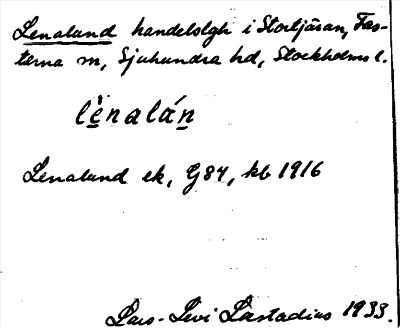 Lenalund handelslgh i Storljåran, Fas-
terna sn, Sjuhundra hd, Stockholms l.
lènalán
Lenalund ek, G84, kb 1916
Lars-Levi Læstadius 1933.